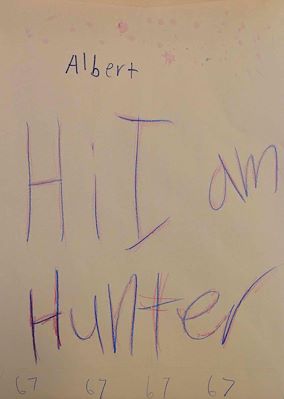 Albert
Hi I am
Hunter
67 67 67 67